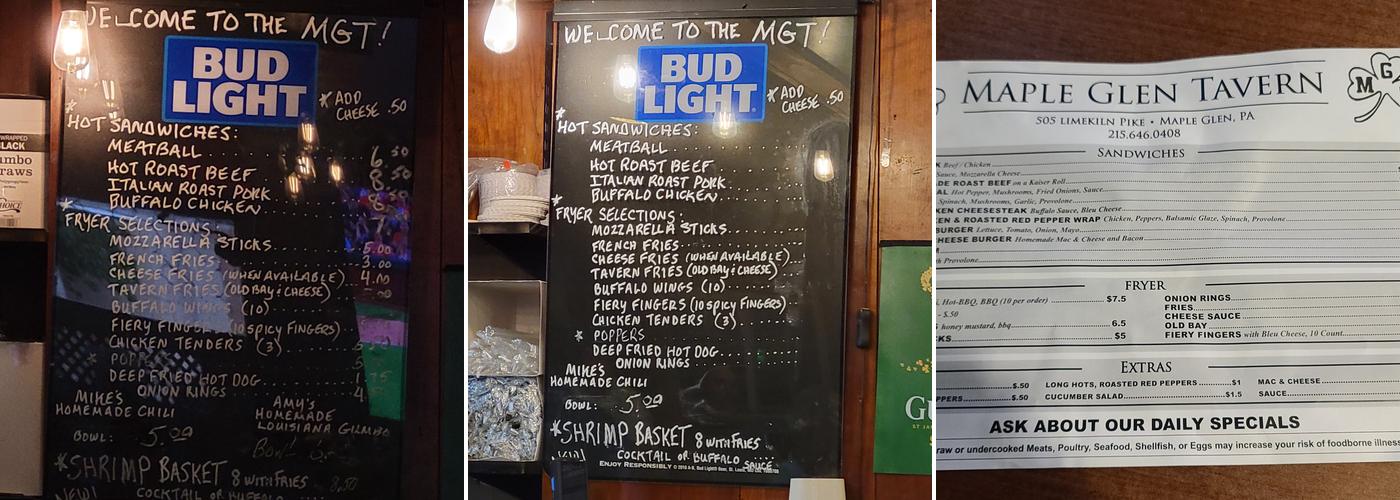 WELCOME TO THE MGT!
BUD
LIGHT
* ADD
CHEESE .50
*
HOT SANDWICHES:
MEATBALL 6 50
HOT ROAST BEEF
ITALIAN ROAST PORK
BUFFALO CHICKEN
FRYER SELECTIONS:
MOZZARELLA STICKS 5.00
FRENCH FRIES 3.00
CHEESE FRIES (WHEN AVAILABLE) 4.00
TAVERN FRIES (OLD BAY & CHEESE)
BUFFALO WINGS (10)
FIERY FINGERS (10 SPICY FINGERS)
CHICKEN TENDERS (3)
* POPPERS
DEEP FRIED HOT DOG 1.75
ONION RINGS
MIKE'S
HOMEMADE CHILI
BOWL: 5.00
AMY'S
HOMEMADE
LOUISIANA GUMBO
*SHRIMP BASKET 8 WITH FRIES 8.50
COCKTAIL OR BUFFALO
WRAPPED
BLACK
WELCOME TO THE MGT!
BUD
LIGHT
* ADD
CHEESE .50
*
HOT SANDWICHES:
MEATBALL
HOT ROAST BEEF
ITALIAN ROAST PORK
BUFFALO CHICKEN
*
FRYER SELECTIONS:
MOZZARELLA STICKS
FRENCH FRIES
CHEESE FRIES (WHEN AVAILABLE)
TAVERN FRIES (OLD BAY & CHEESE)
BUFFALO WINGS (10)
FIERY FINGERS (10 SPICY FINGERS)
CHICKEN TENDERS (3)
* POPPERS
DEEP FRIED HOT DOG
ONION RINGS
MIKE'S
HOMEMADE CHILI
BOWL: 5.00
*SHRIMP BASKET 8 WITH FRIES
COCKTAIL OR BUFFALO SAUCE
ENJOY RESPONSIBLY
MAPLE GLEN TAVERN
M G
505 LIMEKILN PIKE • MAPLE GLEN, PA
215.646.0408
SANDWICHES
Beef / Chicken
Sauce, Mozzarella Cheese
ROAST BEEF on a Kaiser Roll
Hot Pepper, Mushrooms, Fried Onions, Sauce
Spinach, Mushrooms, Garlic, Provolone
CHEESESTEAK Buffalo Sauce, Bleu Cheese
& ROASTED RED PEPPER WRAP Chicken, Peppers, Balsamic Glaze, Spinach, Provolone
BURGER Lettuce, Tomato, Onion, Mayo
CHEESE BURGER Homemade Mac & Cheese and Bacon
Provolone
FRYER
Hot-BBQ, BBQ (10 per order) $7.5
- $.50
honey mustard, bbq 6.5
$5
ONION RINGS
FRIES
CHEESE SAUCE
OLD BAY
FIERY FINGERS with Bleu Cheese, 10 Count
EXTRAS
$.50
$.50
LONG HOTS, ROASTED RED PEPPERS $1
CUCUMBER SALAD $1.5
MAC & CHEESE
SAUCE
ASK ABOUT OUR DAILY SPECIALS
raw or undercooked Meats, Poultry, Seafood, Shellfish, or Eggs may increase your risk of foodborne illness